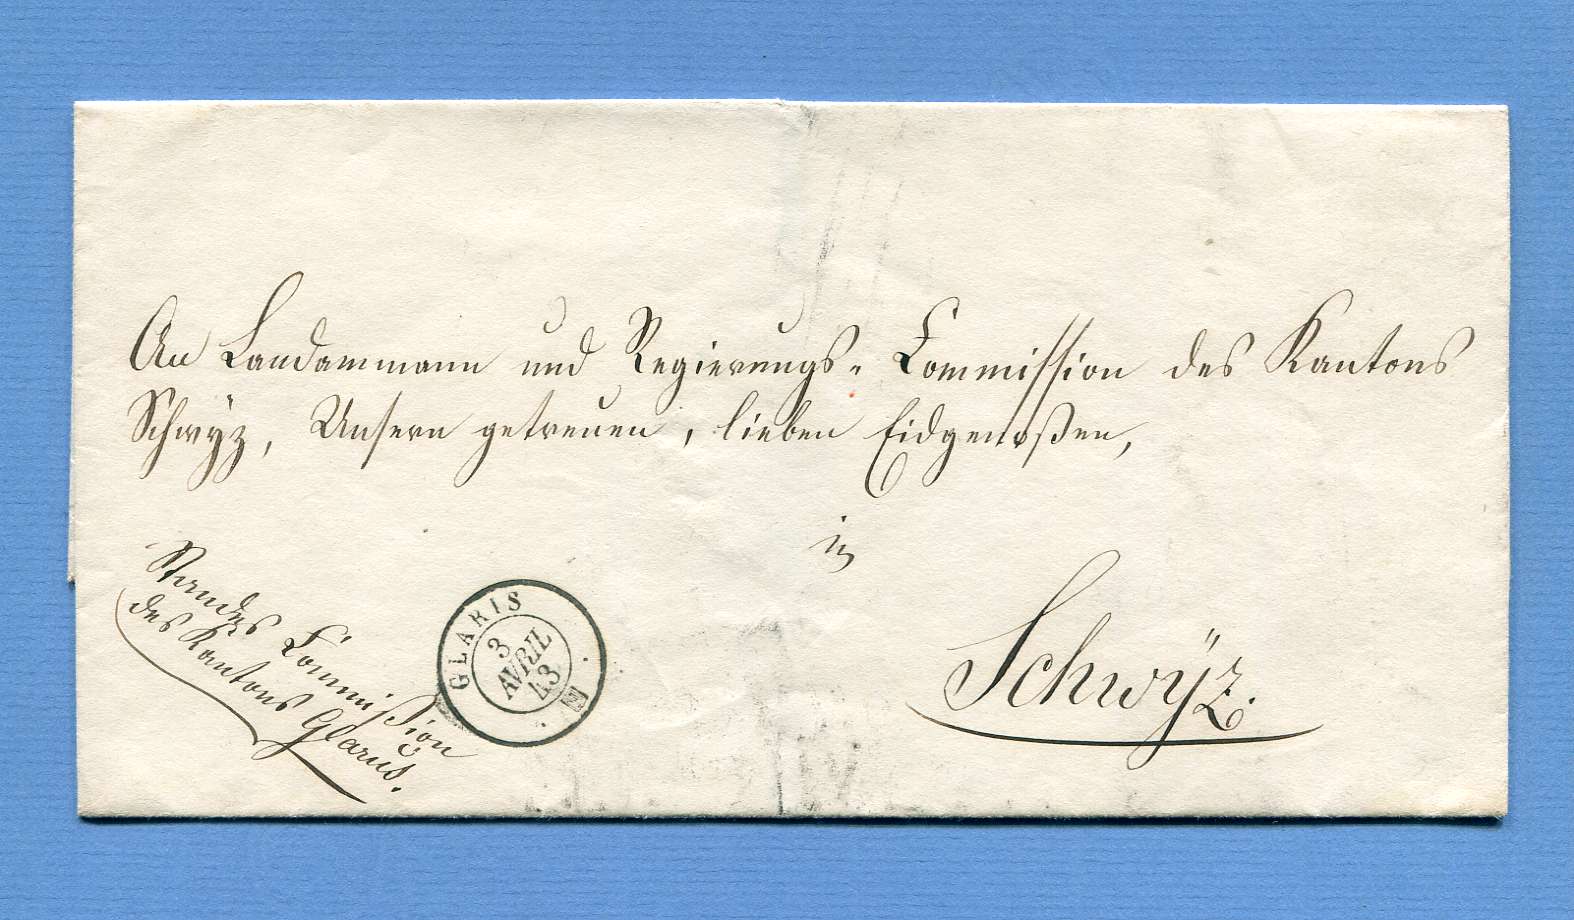 An Landammann und Regierungs-Commission des Kantons
Schwÿz, Unsern getreuen, lieben Eidgenoßen,
in
Schwÿz.
Standes Commißion
des Kantons Glarus.
GLARIS
3
AVRIL
43